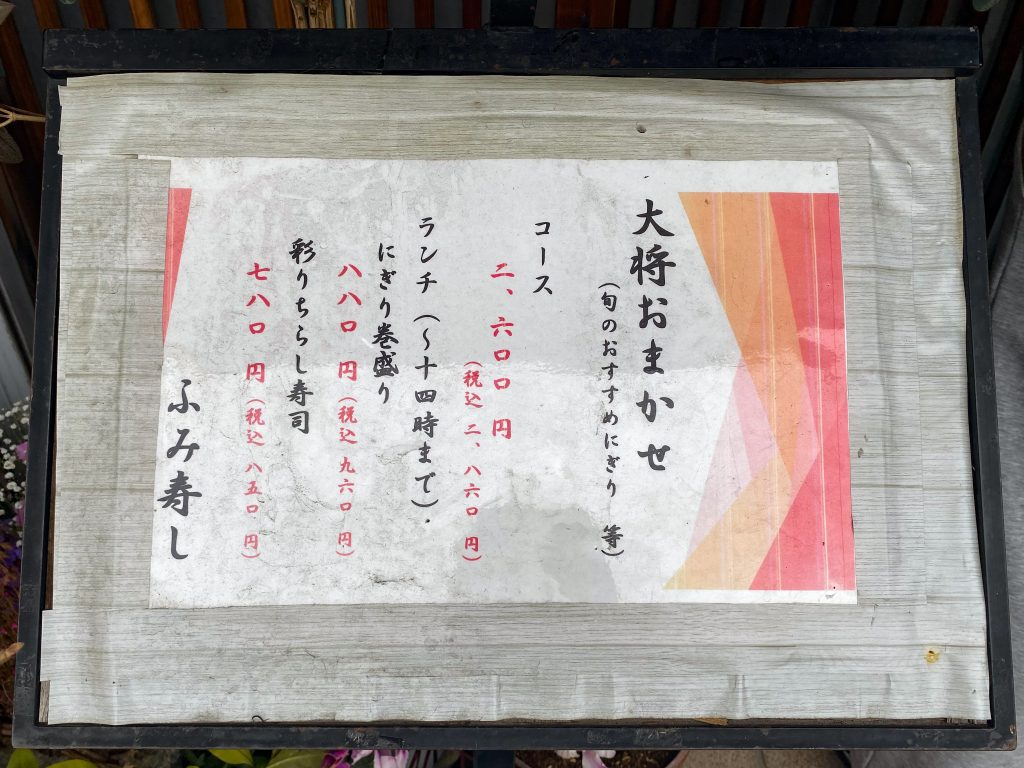 大将おまかせ
(旬のおすすめにぎり 等)
コース
二、六〇〇 円
(税込 二、八六〇 円)
ランチ(~十四時まで).
にぎり巻盛り
八八〇 円(税込 九六〇 円)
彩りちらし寿司
七八〇 円(税込 八五〇 円)
ふみ寿し